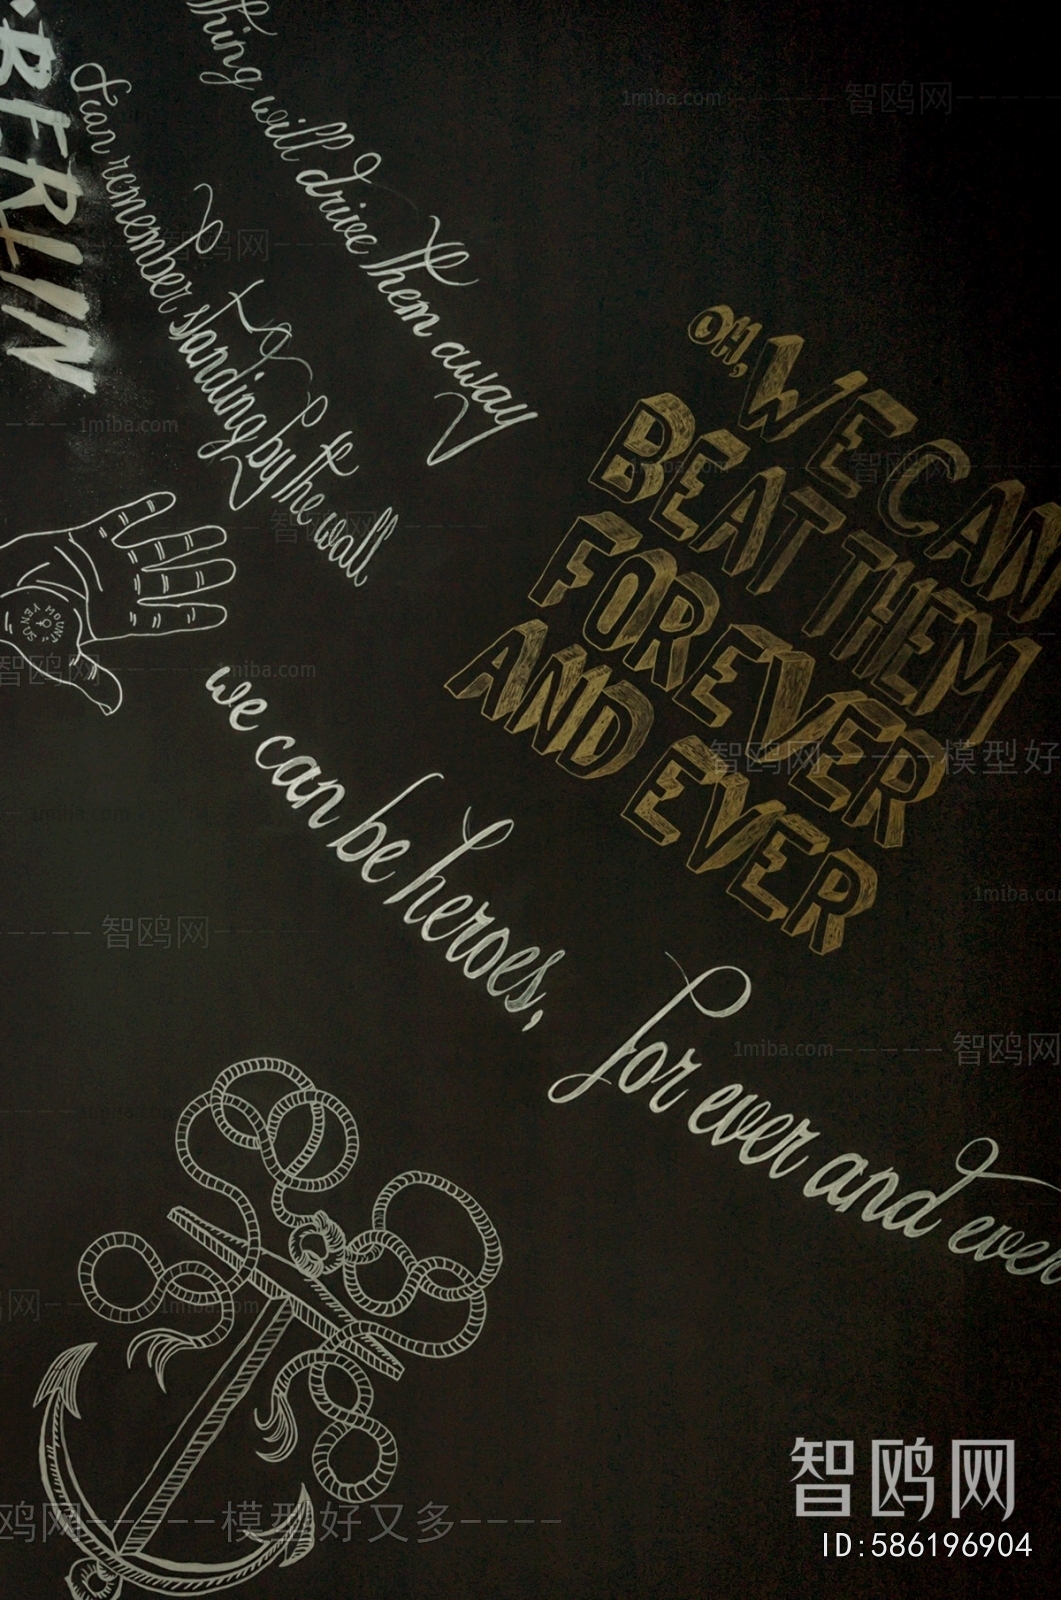 BERLIN
I can remember standing by the wall
thing will drive them away
OH, WE CAN
BEAT THEM
FOREVER
AND EVER
MOUNT
VENUS
we can be heroes,
for ever and ever
1miba.com
智鸥网
模型好又多
智鸥网
ID:586196904